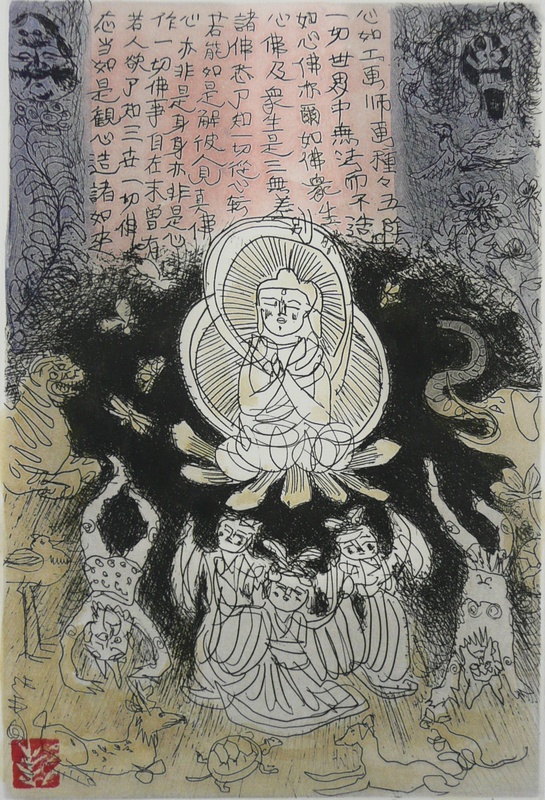 心如工画師画種々五陰
一切世界中無法而不造
如心佛亦爾如佛衆生然
心佛及衆生是三無差別
諸佛悉了知一切従心転
若能如是解彼人見真佛
心亦非是身身亦非是心
作一切佛事自在未曽有
若人欲了知三世一切佛
応当如是観心造諸如来